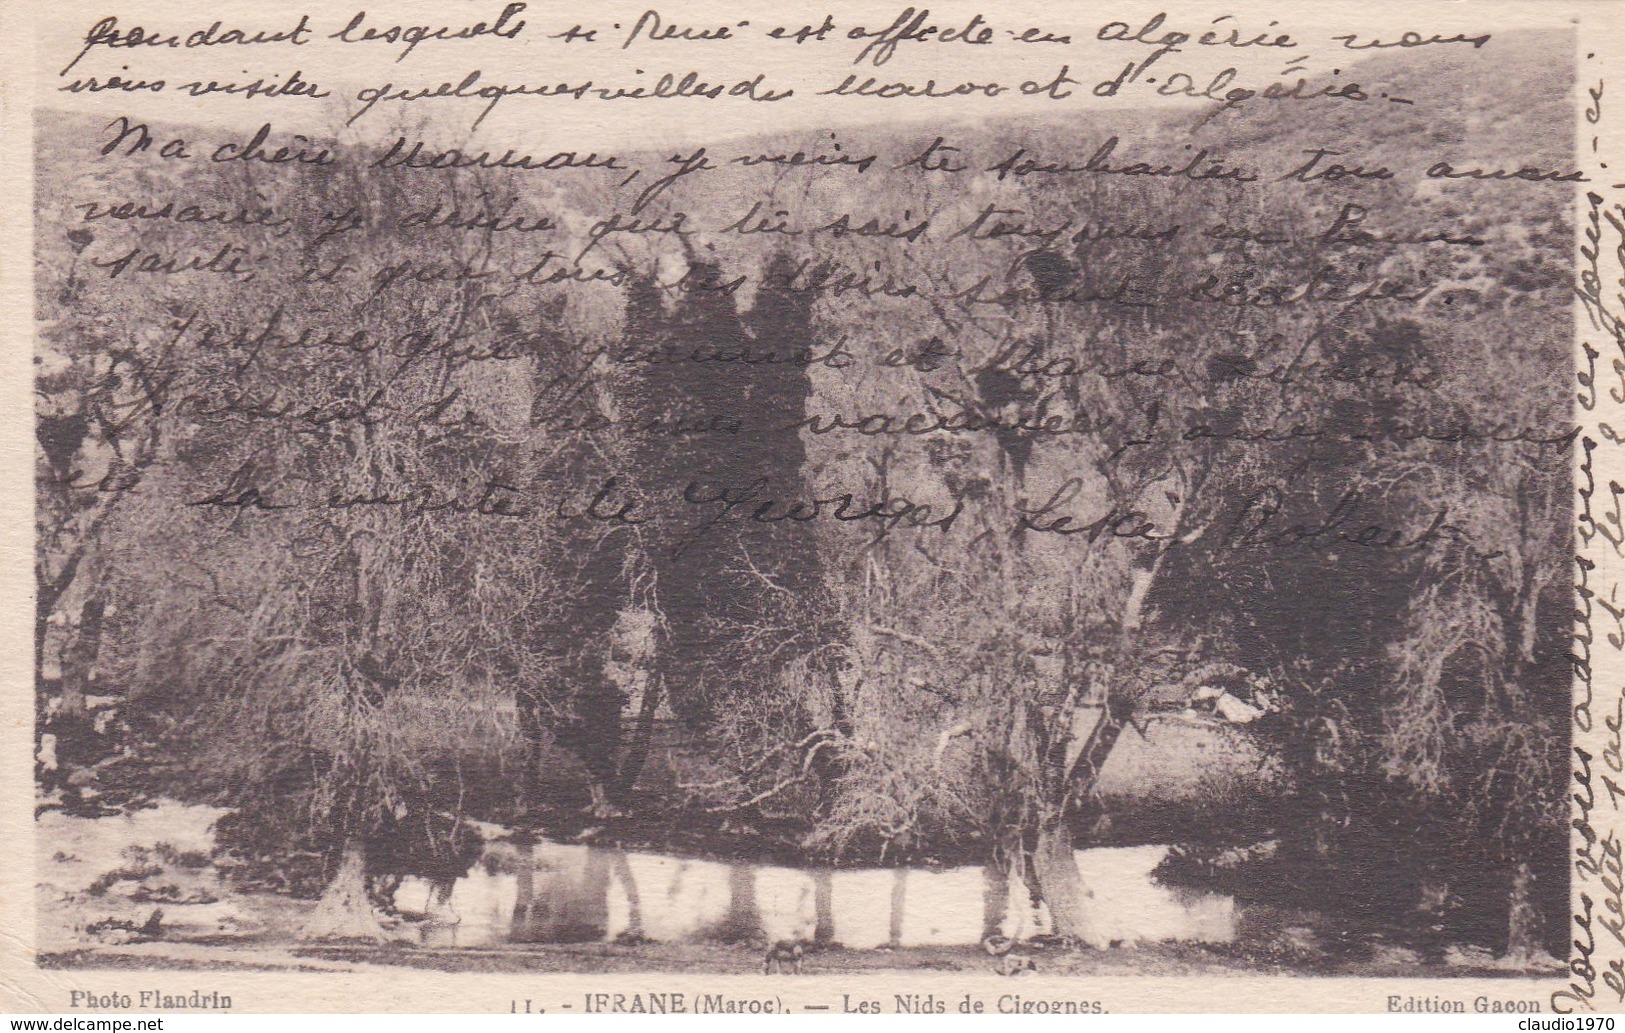 pendant lesquels si René est affecté en Algérie, nous
irons visiter quelques villes du Maroc et d'Algérie.-
Ma chère Maman, je viens te souhaiter ton anni-
versaire, je désire que tu sois toujours en bonne
santé, et que tous tes désirs soient réalisés.
J'espère que et Marie
passent de bonnes vacances
la visite de Georges, Robert,
Nous vous adressons ces jours-ci
le petit sac et les 2
Photo Flandrin
11. - IFRANE (Maroc). — Les Nids de Cigognes.
Edition Gacon
claudio1970